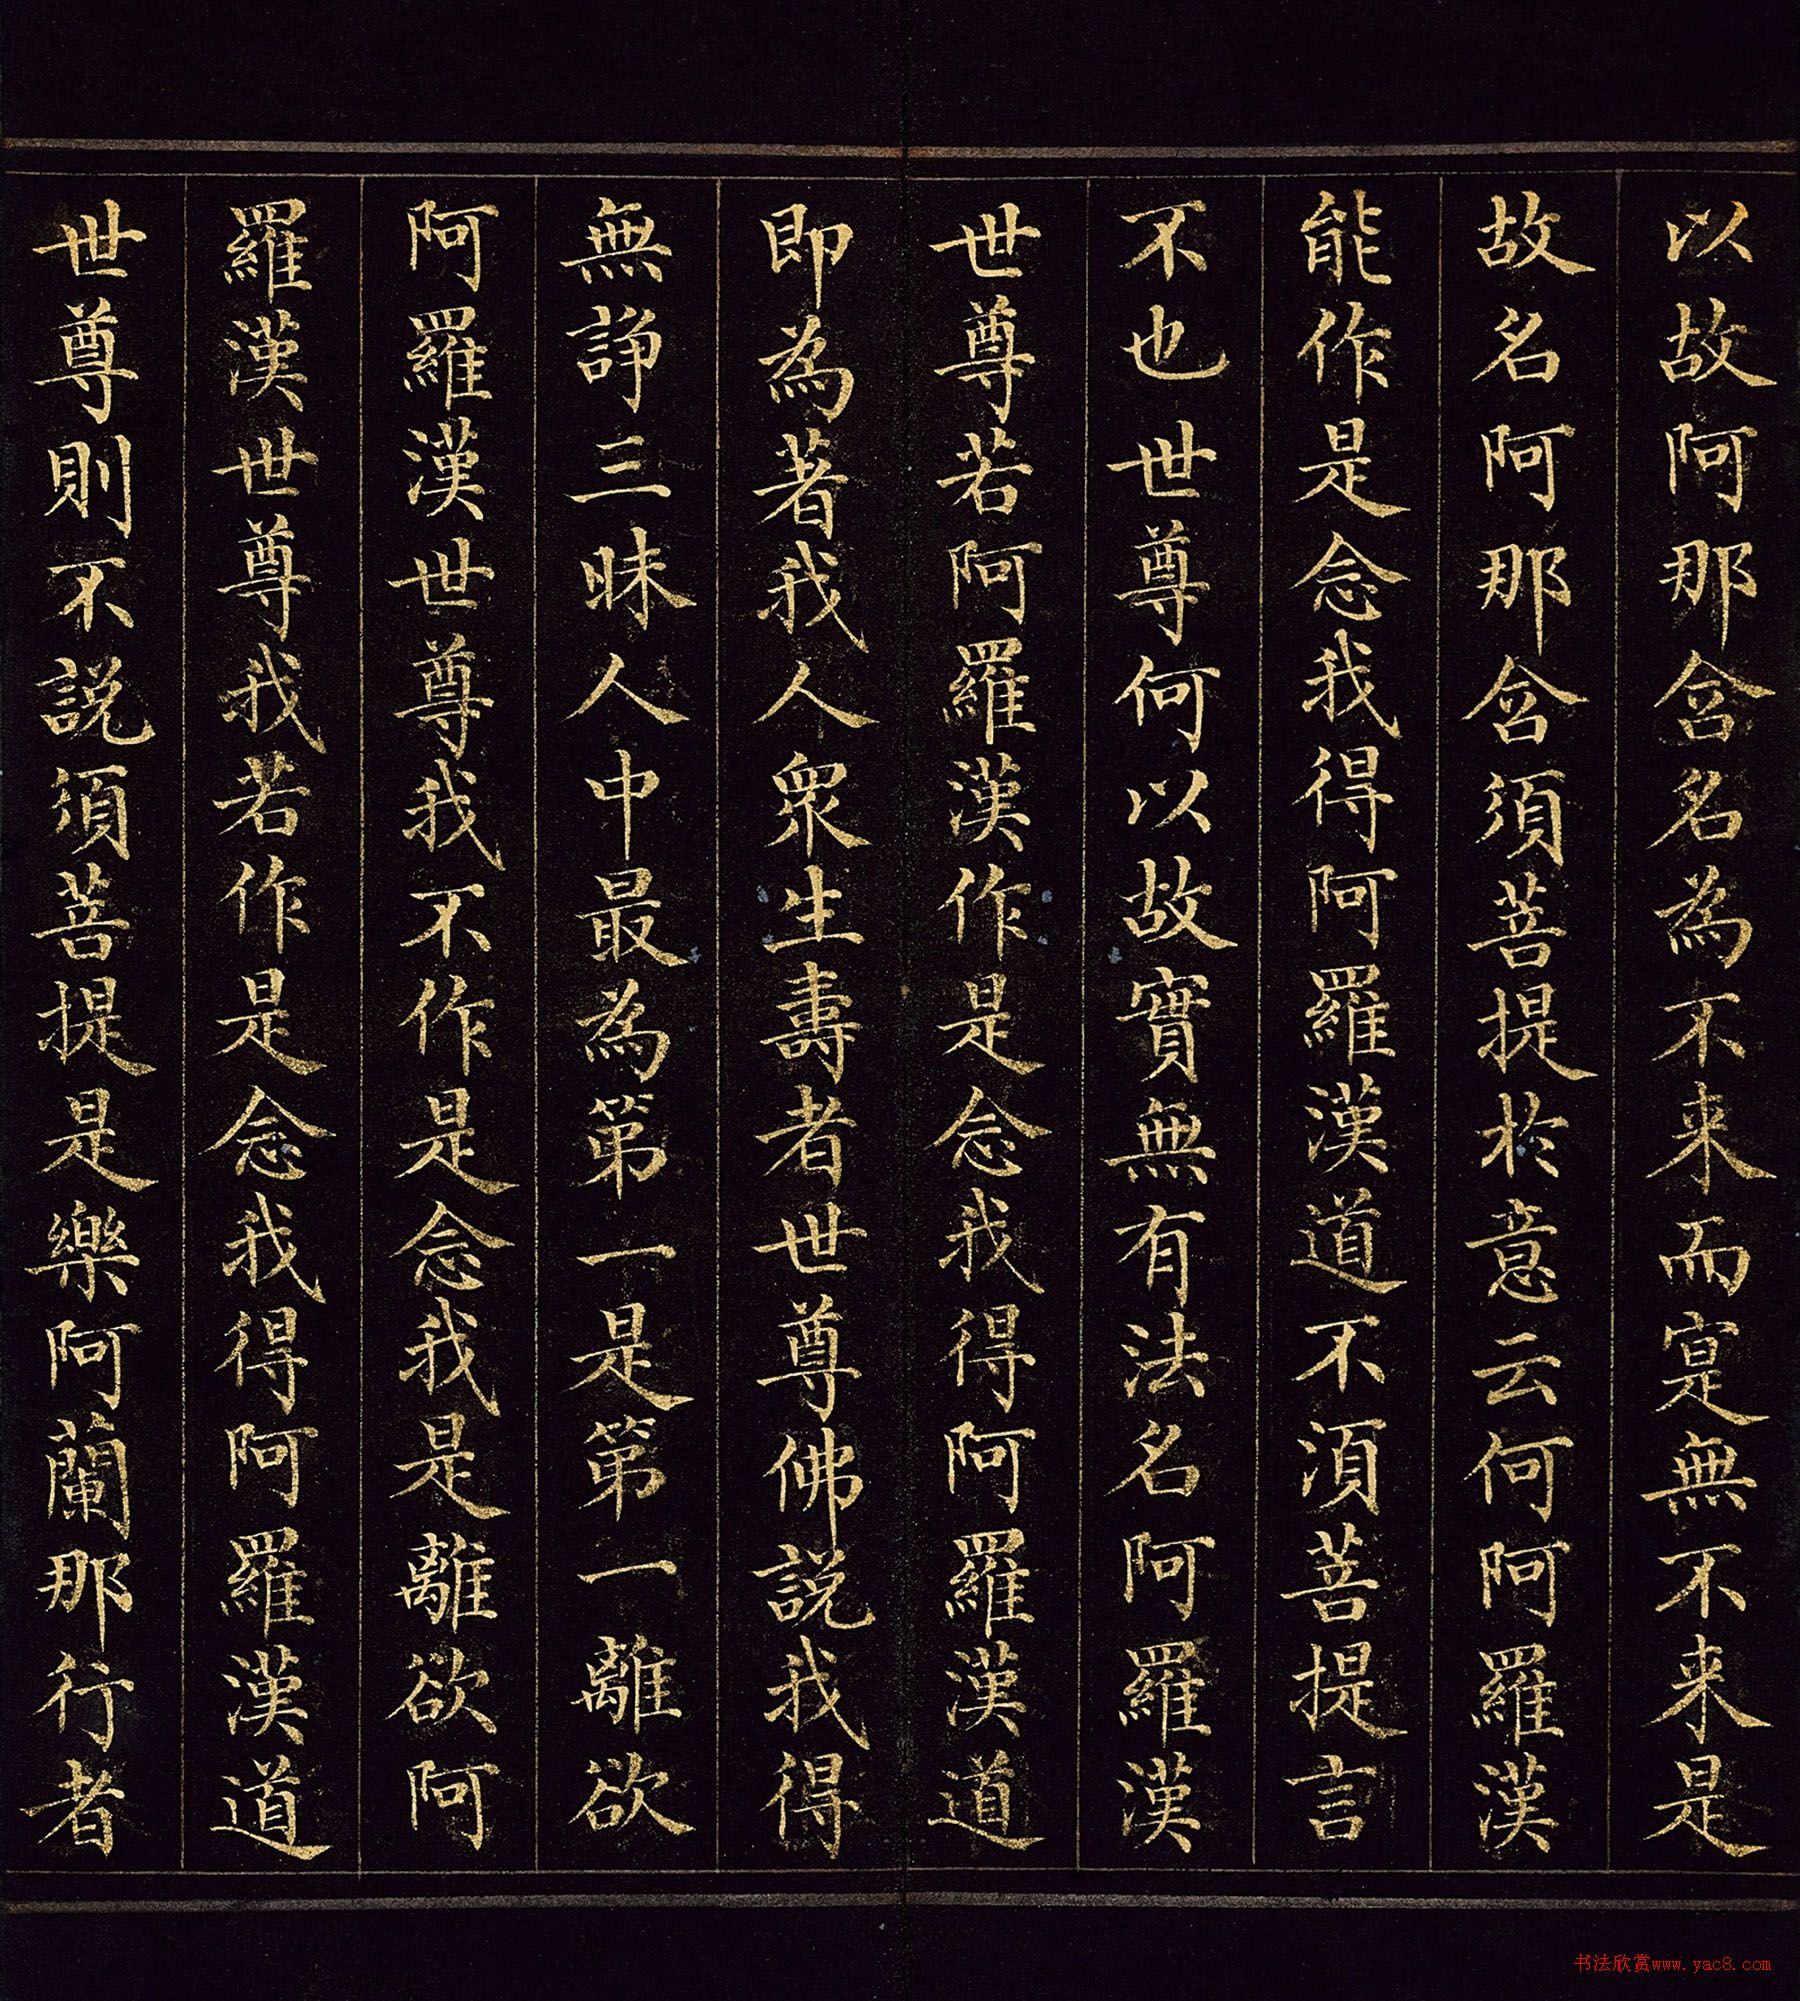 以故阿那含名為不来而寔無不来是
故名阿那含須菩提於意云何阿羅漢
能作是念我得阿羅漢道不湏菩提言
不也世尊何以故實無有法名阿羅漢
世尊若阿羅漢作是念我得阿羅漢道
即為著我人眾生壽者世尊佛說我得
無諍三昧人中最為第一是第一離欲
阿羅漢世尊我不作是念我是離欲阿
羅漢世尊我若作是念我得阿羅漢道
世尊則不說須菩提是樂阿蘭那行者
书法欣赏www.yac8.com